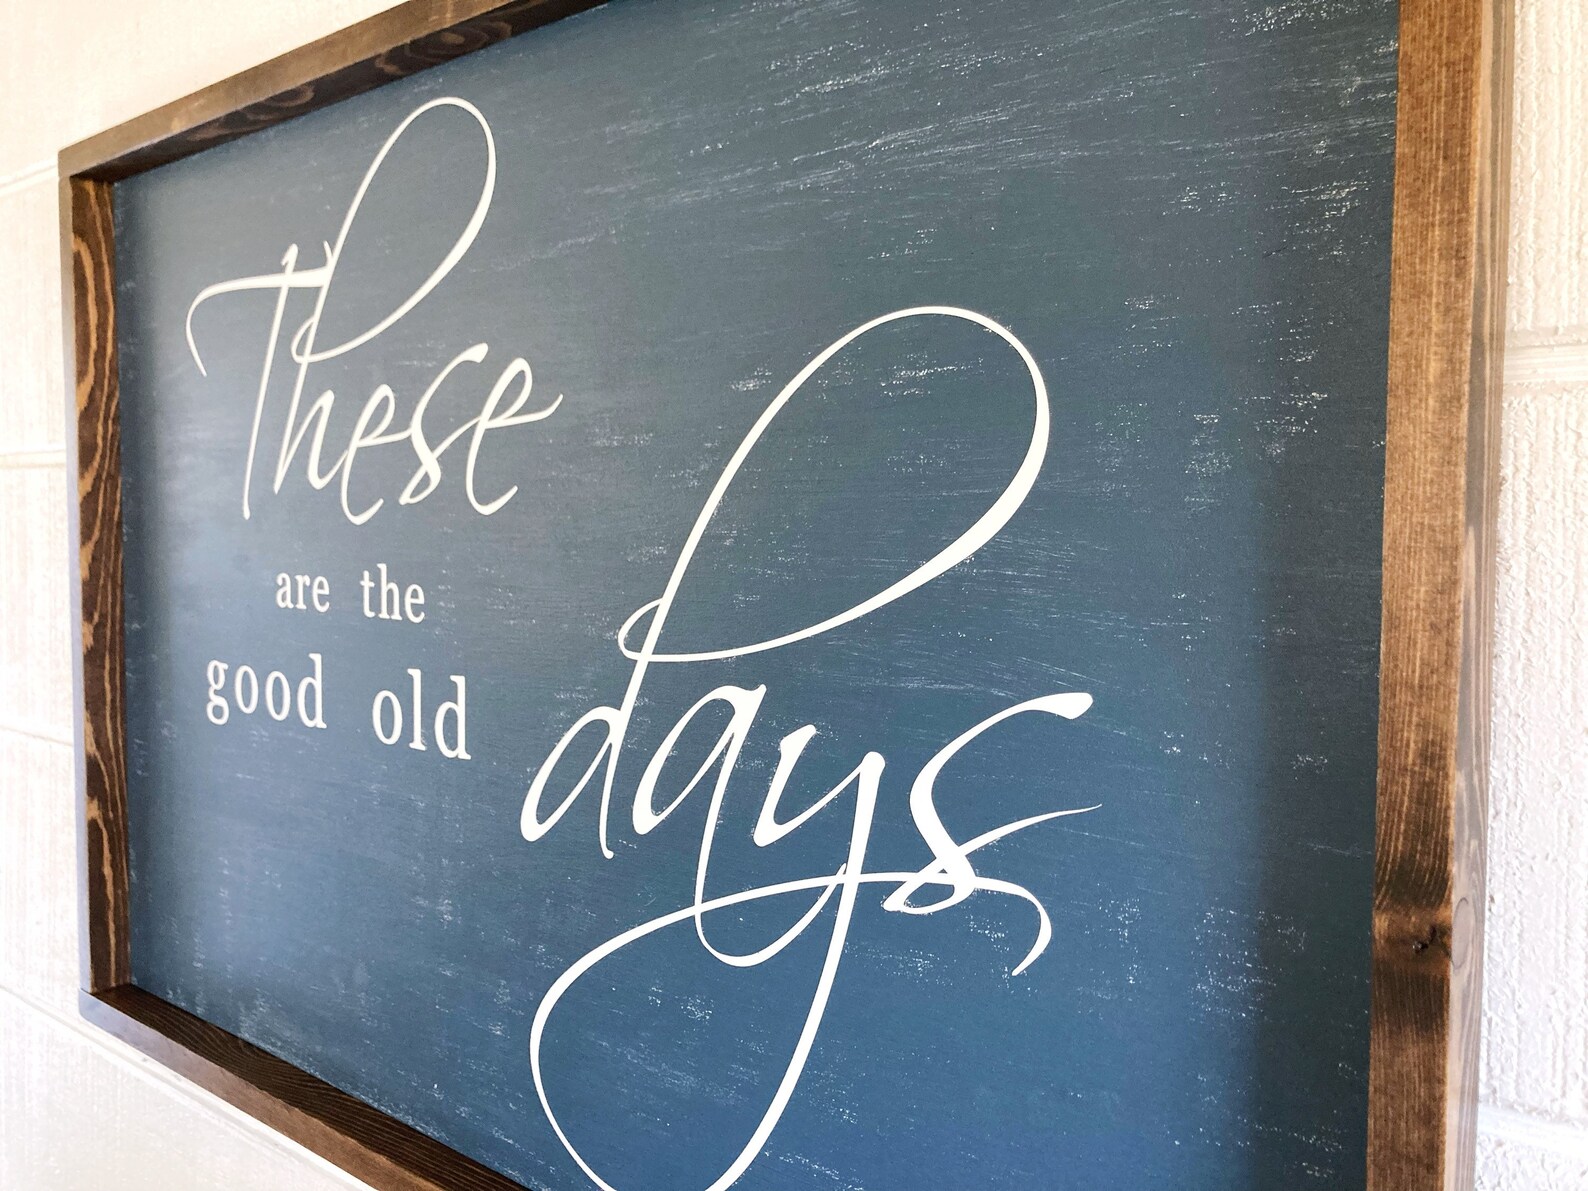 These
are the
good old
days